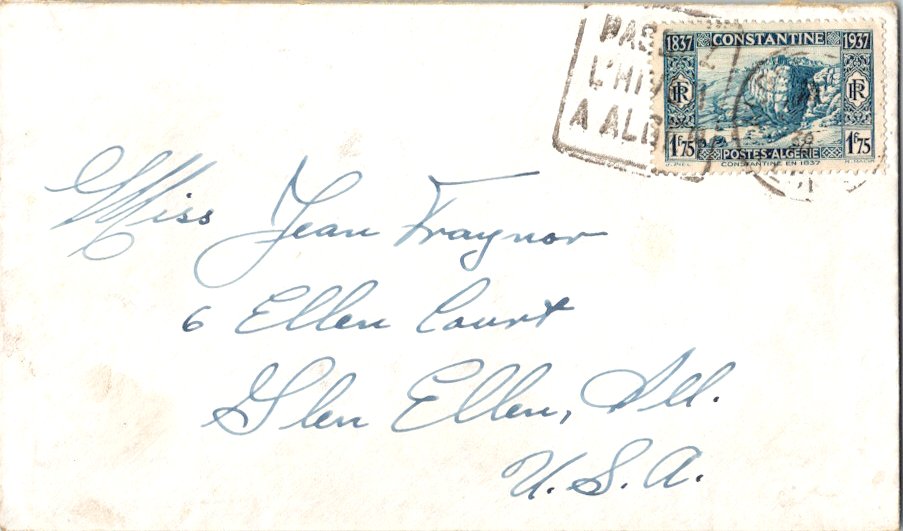 PASSEZ
L'HIVER
A ALGER
1837 CONSTANTINE 1937
RF RF
1F75 POSTES-ALGERIE 1F75
CONSTANTINE EN 1837
Miss Jean Traynor
6 Ellen Court
Glen Ellen, Ill.
U.S.A.